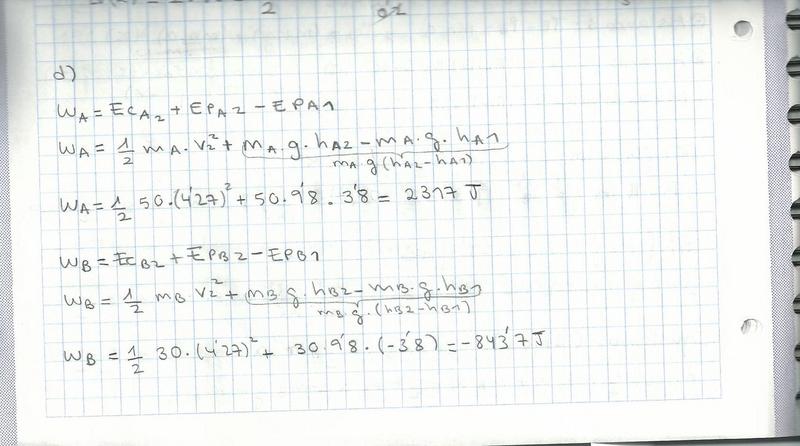 d)
W_A = E_CA2 + E_PA2 - E_PA1
W_A = 1/2 m_A · V_2^2 + m_A · g · h_A2 - m_A · g · h_A1
m_A · g (h_A2 - h_A1)
W_A = 1/2 50 · (4'27)^2 + 50 · 9'8 · 3'8 = 2317 J
W_B = E_CB2 + E_PB2 - E_PB1
W_B = 1/2 m_B V_2^2 + m_B · g · h_B2 - m_B · g · h_B1
m_B · g · (h_B2 - h_B1)
W_B = 1/2 30 · (4'27)^2 + 30 · 9'8 · (-3'8) = -843'7 J